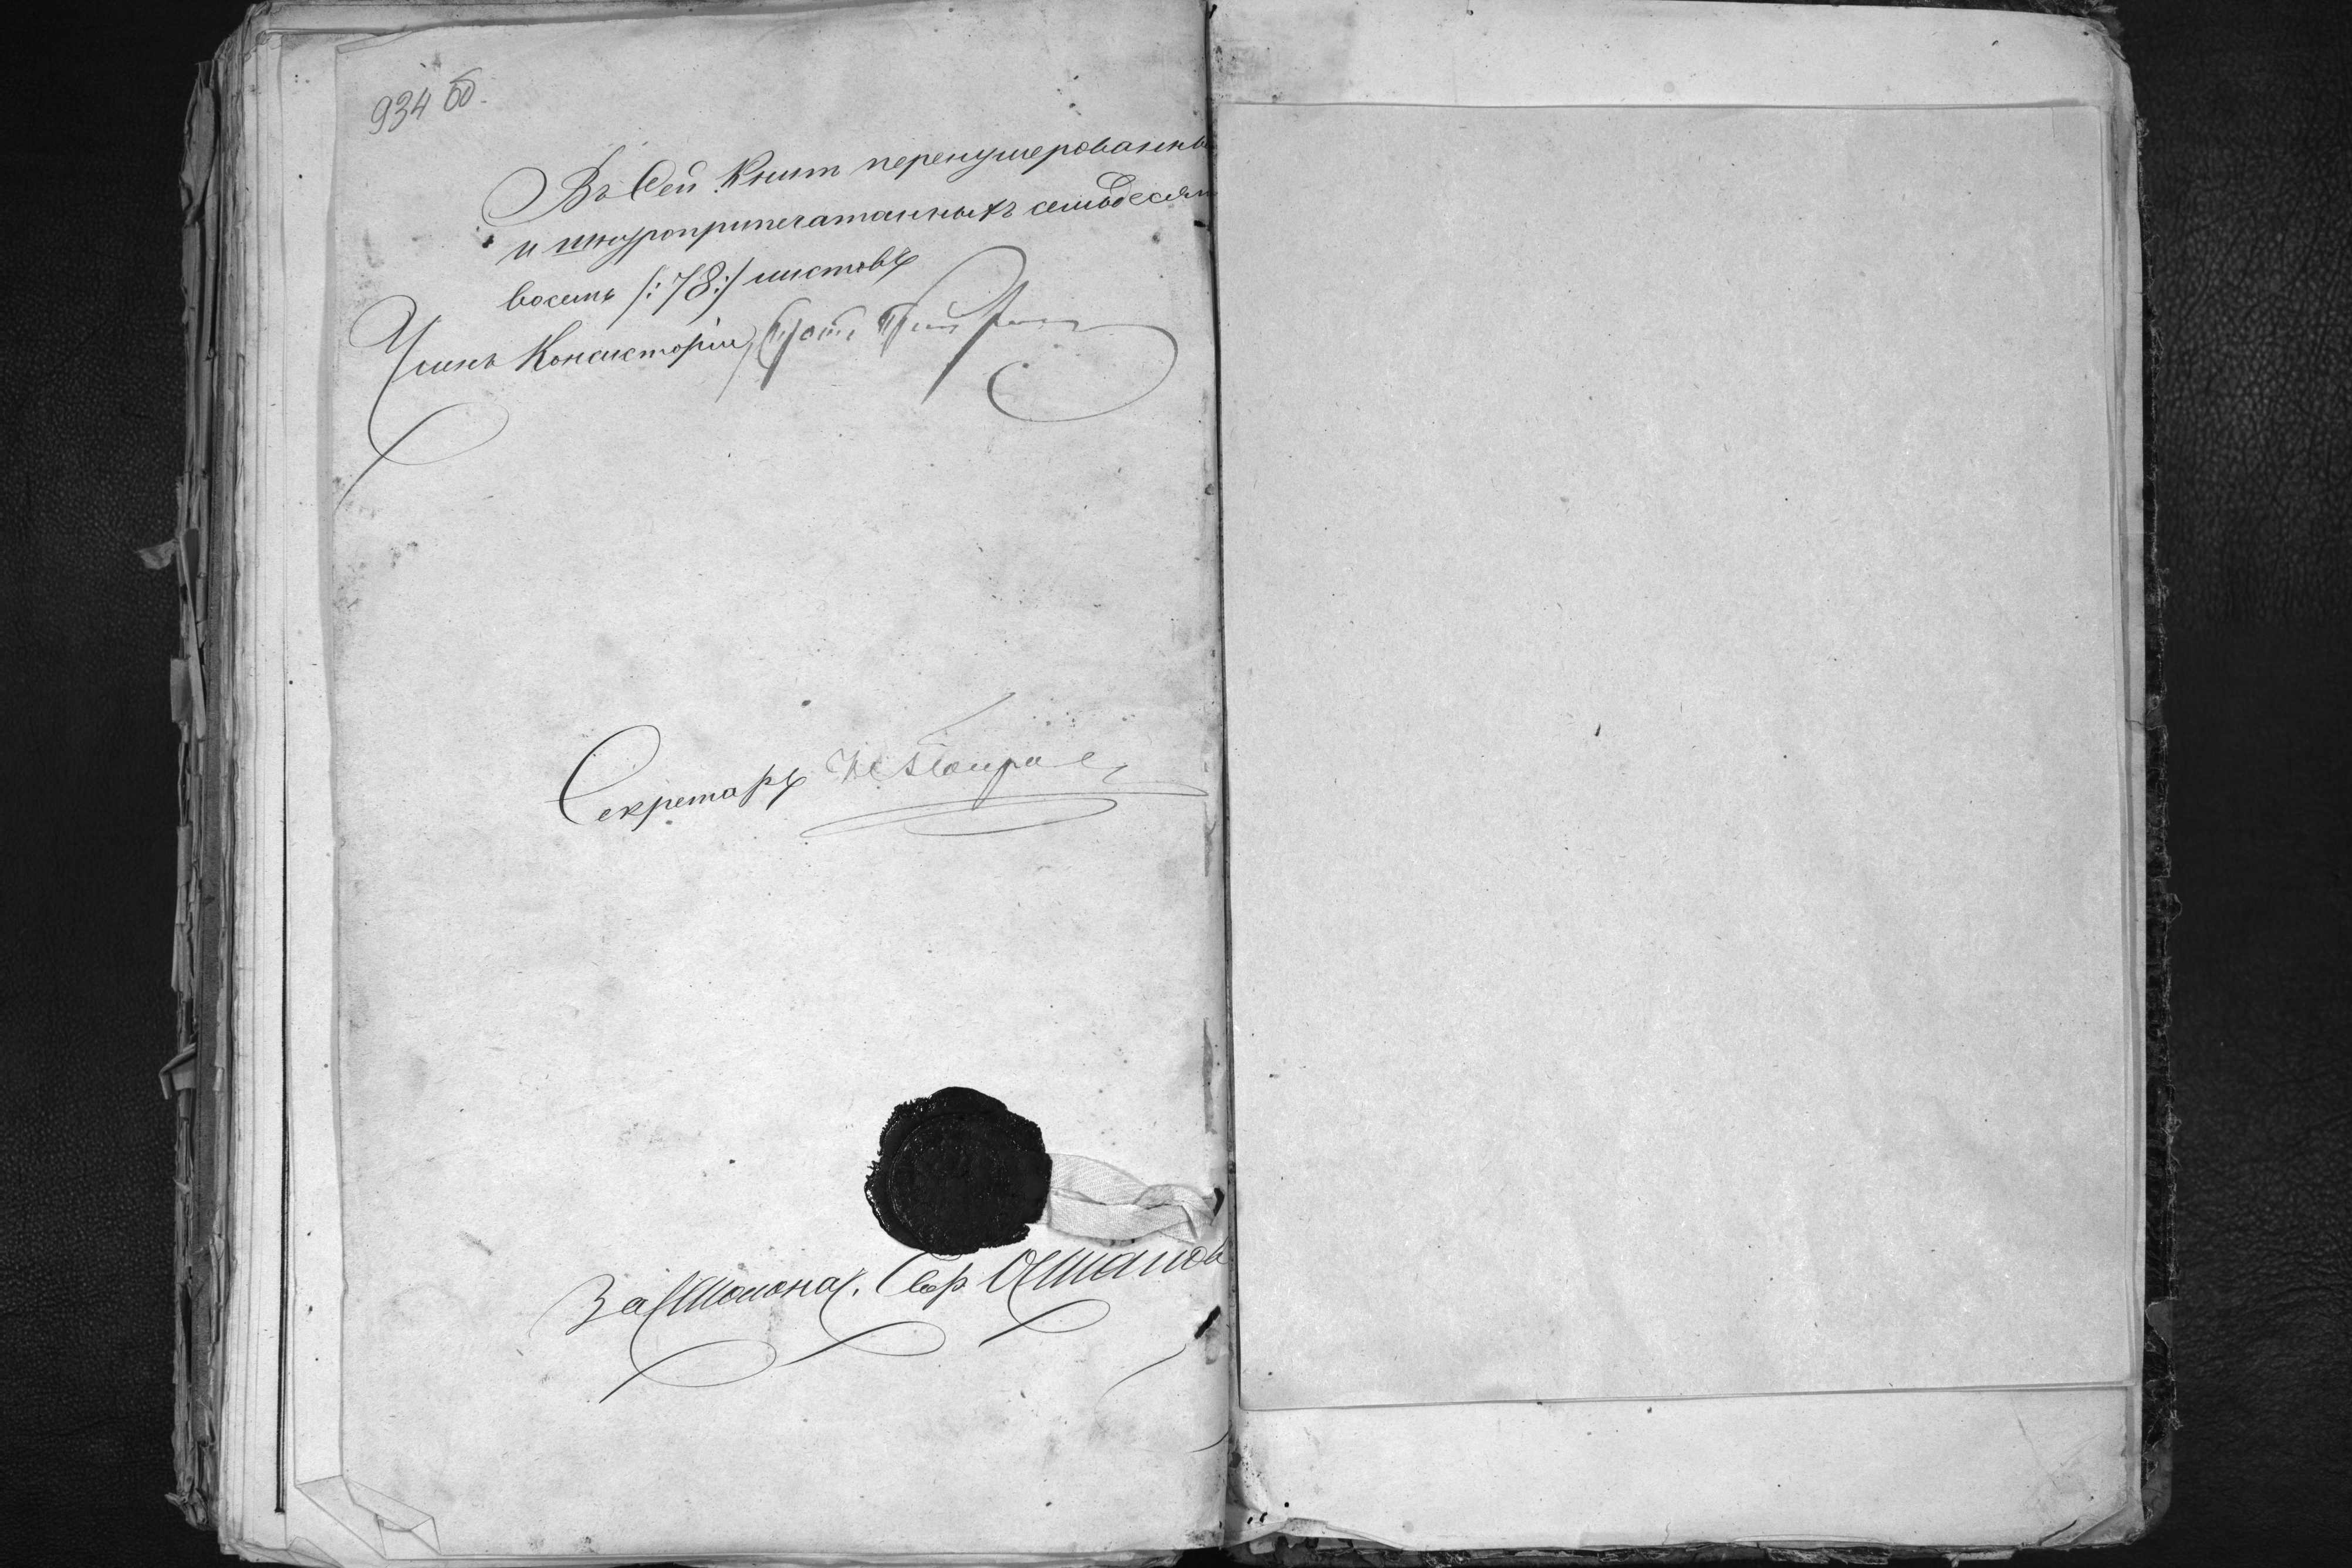 934 об.
Въ Сей Книгѣ перенумерованны
и шнуроприпечатанныхъ семьдесят
восемь /:78:/ листовъ
Членъ Консисторіи, Прот.
Секретарь
За Столонач. Свр.